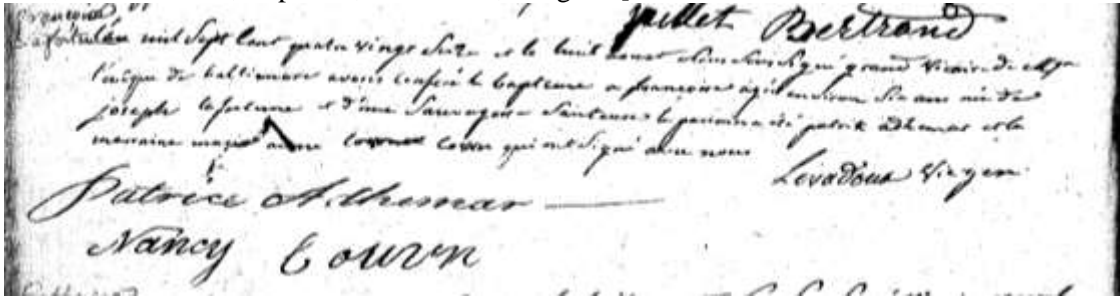 juillet Bertrand
françoise
Lafortune
L'an mil Sept Cent quatre vingt Seize et le huit aout nous Soussigné grand Vicaire de Mgr
l'évêque de baltimore avons conféré le baptême a françoise agée environ Six ans née de
joseph lafortune et d'une Sauvagesse Sauteuse le parrain a été patrik adhemar et la
marraine marie anne Couvn qui ont Signé avec nous
Levadoux Vic gen
Patrice Adhemar
Nancy Couvn